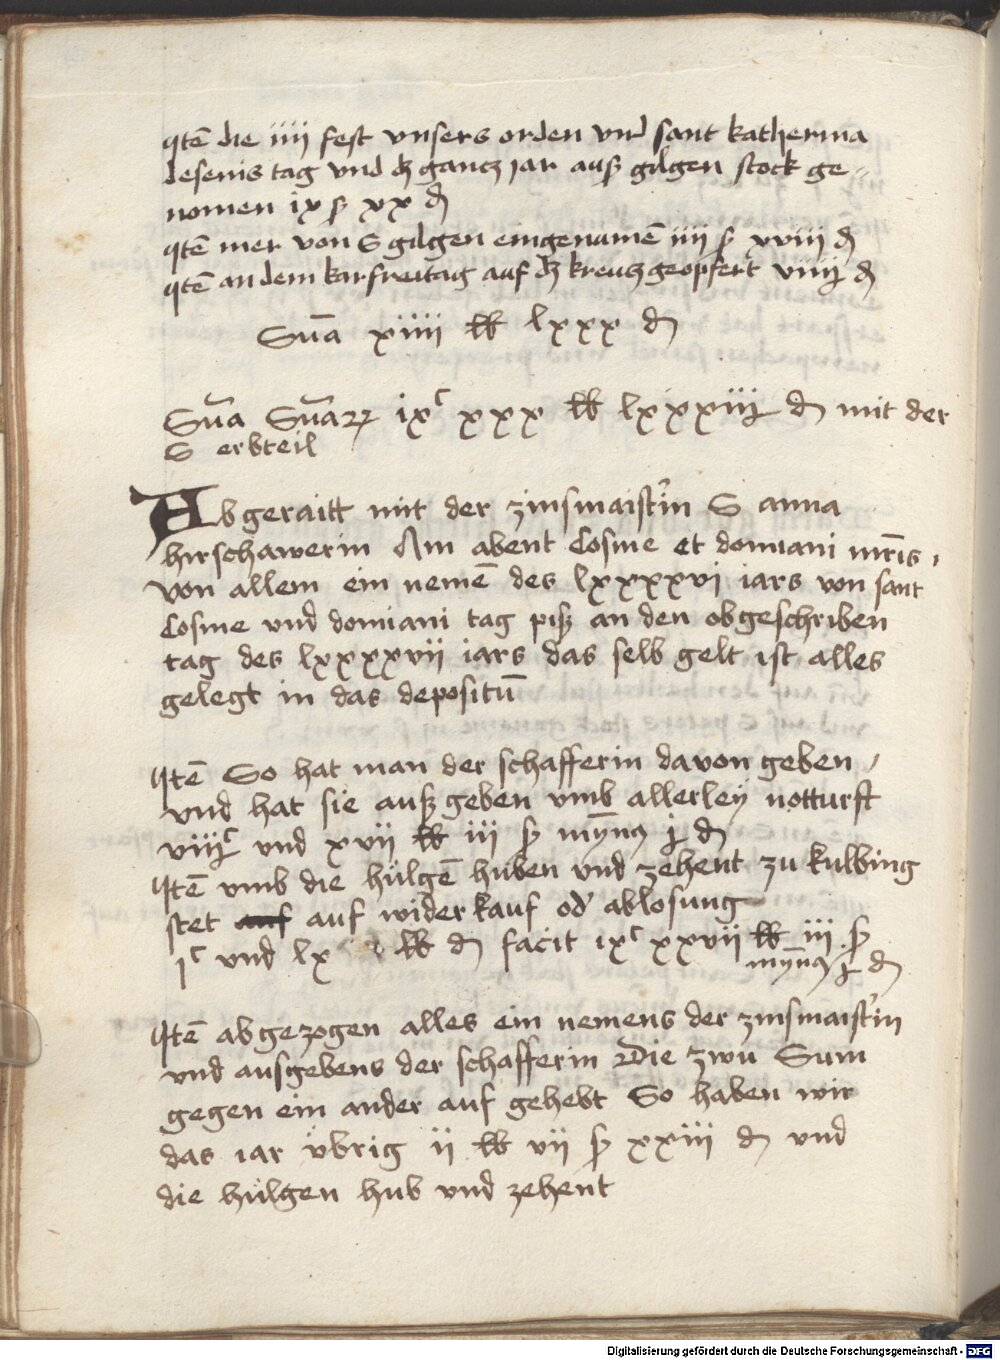 Itē die iiij fest vnsers orden vnd sant katherina
desenis tag vnd dz gancz iar auß gilgen stock ge⸗
nomen ix ß xx ₰
Itē mer von S gilgen eingenamē iiij ß xviij ₰
Itē an dem karfreitag auf dz kreucz geopfert viiij ₰
Sūa xiiij lb lxxx ₰
Sūa Sūaꝝ ixᶜ xxx lb lxxxiij ₰ mit der
S erbteil
Abgeraitt mit der zinsmaist'in S anna
hirschawerin Am abent Cosme et domiani mr̄is,
von allem ein nemē des lxxxxvi iars von sant
Cosme vnd domiani tag piß an den obgeschriben
tag des lxxxxvii iars das selb gelt ist alles
gelegt in das depositū
Itē So hat man der schafferin davon geben,
vnd hat sie außgeben vmb allerley notturft
viiijᶜ vnd xvii lb iii ß myn̄ꝰ j ₰
Itē vmb die hülgē huben vnd zehent zu kulbing
stet auf auf widerkauf od' ablosung
jᶜ vnd lx lb ₰ facit ixᶜ xxvii lb iii ß
myn̄ꝰ j ₰
Itē abgezogen alles ein nemens der zinsmaist'in
vnd ausgebens der schafferin Die zwu Sum
gegen ein ander auf gehebt So haben wir
das iar übrig ii lb vii ß xxiii ₰ vnd
die hülgen hub vnd zehent
Digitalisierung gefördert durch die Deutsche Forschungsgemeinschaft - DFG